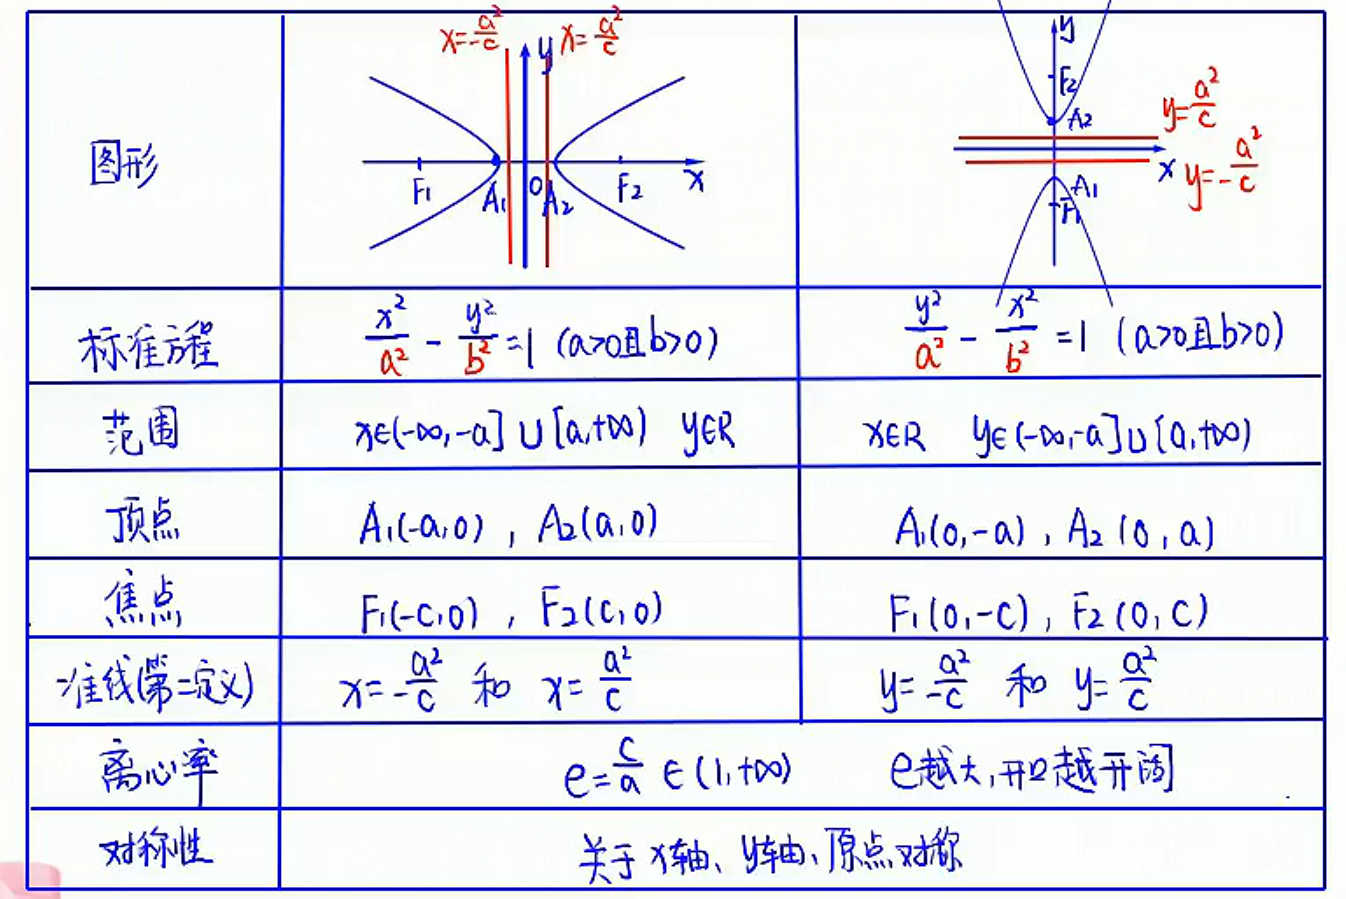 图形
x=-a²/c y x=a²/c
F₁ A₁ 0 A₂ F₂ x
y
F₂
A₂ y=a²/c
x y=-a²/c
A₁
F₁
标准方程 x²/a² - y²/b² =1 (a>0且b>0) y²/a² - x²/b² =1 (a>0且b>0)
范围 x∈(-∞,-a]∪[a,+∞) y∈R x∈R y∈(-∞,-a]∪[a,+∞)
顶点 A₁(-a,0) , A₂(a,0) A₁(0,-a) , A₂(0,a)
焦点 F₁(-c,0) , F₂(c,0) F₁(0,-c) , F₂(0,c)
准线(第二定义) x=-a²/c 和 x=a²/c y=-a²/c 和 y=a²/c
离心率 e=c/a ∈(1,+∞) e越大,开口越开阔
对称性 关于x轴、y轴、原点对称